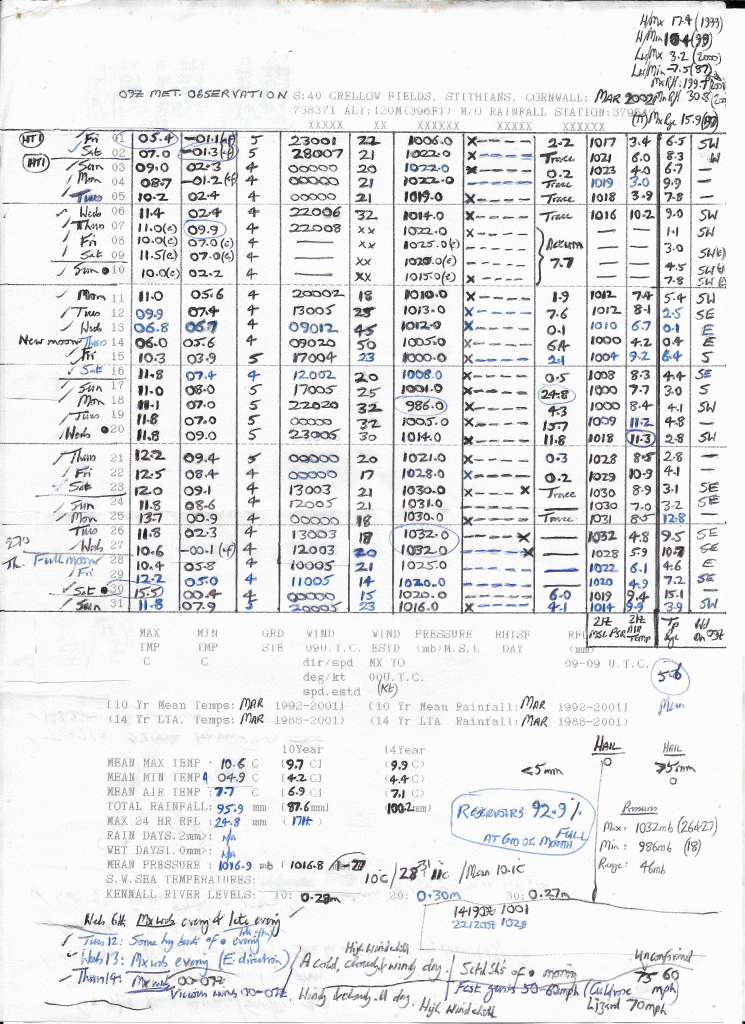 H/Mx 17.4 (1999)
H/Min (99)
Lo/Mx 3.2 (2000)
Lo/Min -7.5 (87)
09Z MET. OBSERVATION S:40 CRELLOW FIELDS, STITHIANS, CORNWALL: MAR 2002
738371 ALT:120M(396FT) M/O RAINFALL STATION:
XXXXX XX XXXXXX XXXXX XXXXXX
Fri 01 05.4 -01.1 5 23001 22 1006.0 X---- 2.2 1017 3.4 6.7 SW
Sat 02 07.0 -01.3 5 28007 21 1022.0 X---- Trace 1021 6.0 8.3 W
Sun 03 09.0 02.3 4 00000 20 1022.0 X---- 0.2 1023 4.0 6.7 —
Mon 04 08.7 -01.2 4 00000 21 1022.0 ---- Trace 1019 3.0 9.9 —
Tues 05 10.2 02.4 4 00000 21 1019.0 X---- Trace 1018 3.9 7.8 —
Wed 06 11.4 02.4 4 22006 32 1014.0 X---- Trace 1016 10.2 9.0 SW
Thurs 07 11.0(e) 09.9 4 22008 XX 1022.0 X---- 1.1 SW
Fri 08 10.0(e) 07.0(e) 4 — XX 1025.0(e) X---- 3.0 SW(e)
Sat 09 11.5(e) 07.0(e) 4 — XX 1020.0(e) X---- 7.7 4.5
Sun 10 10.0(e) 02.2 4 — XX 1015.0(e) X---- 7.8 SW(e)
Mon 11 11.0 05.6 4 20002 18 1010.0 X---- 1.9 1012 7.4 5.4 SW
Tues 12 09.9 07.4 4 13005 25 1013.0 X---- 7.6 1012 8.1 2.5 SE
Wed 13 06.8 06.7 4 09012 45 1012.0 X---- 0.1 1010 6.7 0.1 E
New moon Thurs 14 06.0 05.6 4 09020 50 1005.0 X---- 6.4 1000 4.2 0.4 E
Fri 15 10.3 03.9 5 17004 23 1000.0 X---- 2.1 1004 9.2 6.4 S
Sat 16 11.8 07.4 4 12002 20 1008.0 X---- 0.5 1008 8.3 4.4 SE
Sun 17 11.0 08.0 5 17005 25 1001.0 X---- 24.8 1000 7.7 3.0 S
Mon 18 11.1 07.0 5 22020 32 986.0 X---- 4.3 1000 8.4 4.1 SW
Tues 19 11.8 07.0 5 00000 32 1005.0 X---- 15.7 1009 11.2 4.8 —
Wed 20 11.8 09.0 5 23006 30 1014.0 X---- 11.8 1018 11.3 2.8 SW
Thurs 21 12.2 09.4 5 00000 20 1021.0 X---- 0.3 1028 8.5 2.8 —
Fri 22 12.5 08.4 4 00000 17 1028.0 X---- 0.2 1029 10.9 4.1 —
Sat 23 12.0 09.1 4 13003 21 1030.0 ----X Trace 1030 8.9 3.1 SE
Sun 24 11.8 08.6 4 12005 21 1031.0 ---- — 1030 7.0 3.2 SE
Mon 25 13.7 00.9 4 00000 18 1030.0 ---- Trace 1031 8.5 12.8 —
Tues 26 11.8 02.3 4 13003 18 1032.0 ----X — 1032 4.8 9.5 SE
Wed 27 10.6 -00.1 4 12003 20 1032.0 ----X — 1028 5.9 10.7 SE
Full moon Th. 28 10.4 05.8 4 10005 21 1025.0 ---- — 1022 6.1 4.6 E
Fri 29 12.2 05.0 4 11005 14 1020.0 ---- — 1020 4.9 7.2 SE
Sat 30 15.5 00.4 4 00000 15 1020.0 ---- 6.0 1019 9.4 15.1 —
Sun 31 11.8 07.9 5 20005 23 1016.0 X---- 4.1 1014 9.9 3.9 SW
MAX MIN GRD WIND WIND PRESSURE RHTSF RFL
TMP TMP STE 09U.T.C. ESTD (mb)M.S.L DAY (mm)
C C dir/spd MX TO 09-09 U.T.C.
deg/kt 00U.T.C.
spd.estd (Kt)
21Z MSL PSR 21Z AIR TEMP Tp Rge Wd Dn 09Z
5.6 Mean
[10 Yr Mean Temps: MAR 1992-2001] [10 Yr Mean Rainfall: MAR 1992-2001]
(14 Yr LTA. Temps: MAR 1988-2001) (14 Yr LTA Rainfall: MAR 1988-2001)
10Year 14Year
MEAN MAX TEMP : 10.6 C [9.7 C] (9.9 C)
MEAN MIN TEMP 04.9 C [4.2 C] (4.4 C)
MEAN AIR TEMP: 7.7 C [6.9 C] (7.1 C)
TOTAL RAINFALL: 95.9 mm [87.6mm] (100.2mm)
MAX 24 HR RFL: 24.8 mm (17th)
RAIN DAYS.2mm>: N/A
WET DAYS1.0mm>: N/A
MEAN PRESSURE : 1016.9 mb [1016.8
S.W.SEA TEMPERATURES: 10°C / 11°C / Mean 10.1C
KENNALL RIVER LEVELS: 10: 0.28m 20: 0.30m 30: 0.27m
HAIL <5mm 0
HAIL >5mm 0
RESERVOIRS 92.9% FULL
AT END OF MONTH
Pressure
Max: 1032mb (26&27)
Min: 986mb (18)
Range: 46mb
1419032 1001
2212002 1029
Wed 6th: Mx wnds evening & late evening
Tues 12: Some hy bursts of • evening
Wed 13: Mx wnds evening (E direction)
Thurs 14: Mx wnds 00-09Z
Vicious winds 00-09Z
High Windchill
A cold, cloudy & windy day.
Windy & cloudy all day. High Windchill
Sctd Sh's of • morning
Fcst gusts 50-60mph (Culdrose mph)
Unconfirmed
75 60
Lizard 70mph